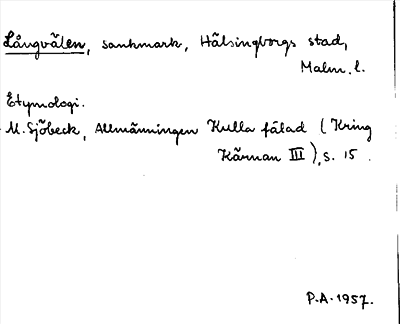 Långvälen, sankmark, Hälsingborgs stad,
Malm. l.
Etymologi.
M. Sjöbeck, Allmänningen Kulla fälad (Kring
Kärnan III), s. 15.
P.A. 1957.